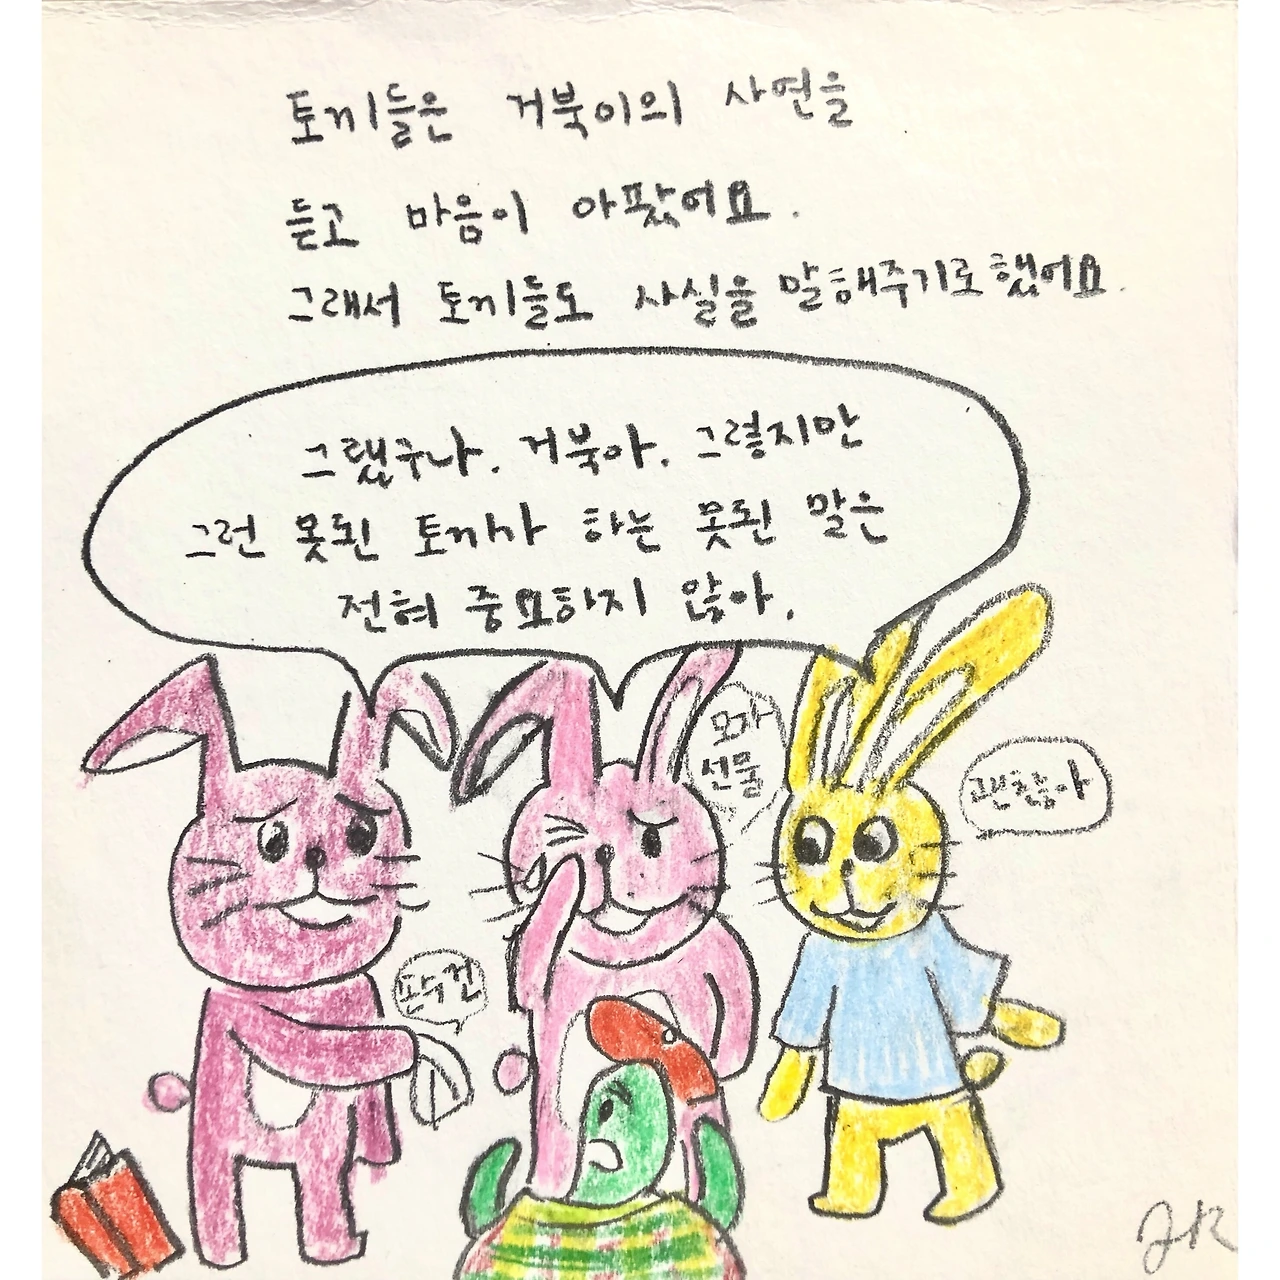 토끼들은 거북이의 사연을
듣고 마음이 아팠어요.
그래서 토끼들도 사실을 말해주기로 했어요.
그랬구나. 거북아. 그렇지만
그런 못된 토끼가 하는 못된 말은
전혀 중요하지 않아.
모자
선물
괜찮아
손수건
JR